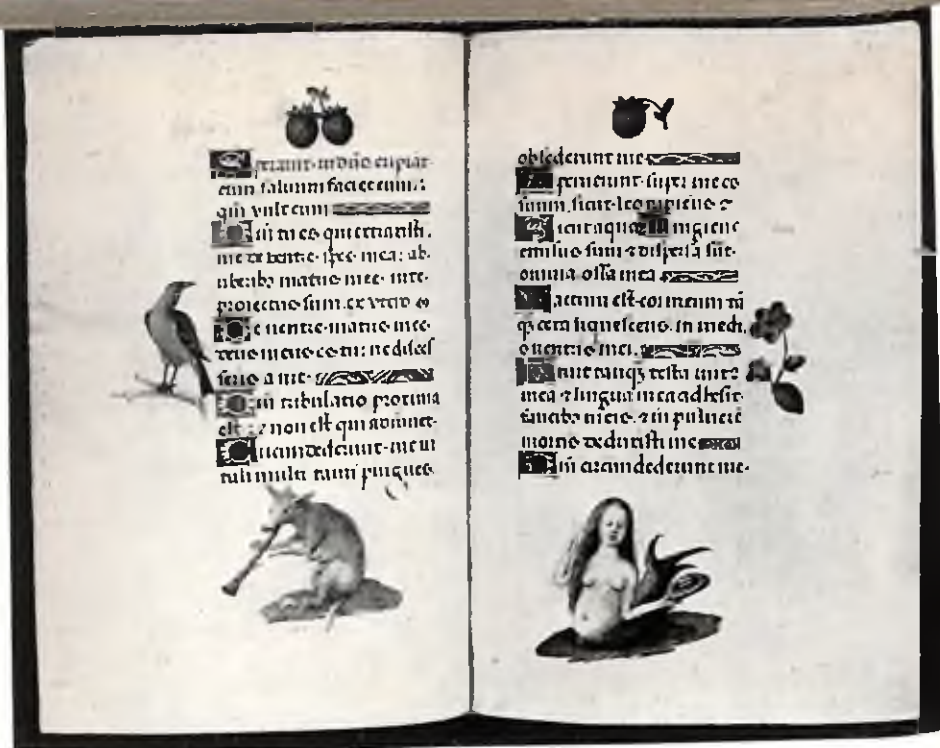 Sperauit in dño eripiat
eum saluum faciet eum:
qm̃ vult eum
Qm̃ tu es qui extraxisti
me de ventre. spes mea: ab
uberibꝫ matris mee. in te
proiectus sum. ex vtero
De uentre matris mee
deus meus es tu: ne disces
seris a me.
Qm̃ tribulatio proxima
est: ⁊ non est qui adiuuet.
Circumdederunt me ui
tuli multi tauri pingues
obsederunt me
Aperuerunt super me os
suum, sicut leo rapiens ⁊
Sicut aqua rugiens
effusus sum ⁊ dispersa sūt
omnia ossa mea
Factum est cor meum tā
qꝫ cera liquescens. in medi
o uentris mei.
Aruit tanqꝫ testa uirtꝰ
mea ⁊ lingua mea adhesit
faucibꝫ meis. ⁊ in puluere
mortis deduxisti me
Qm̃ circumdederunt me.